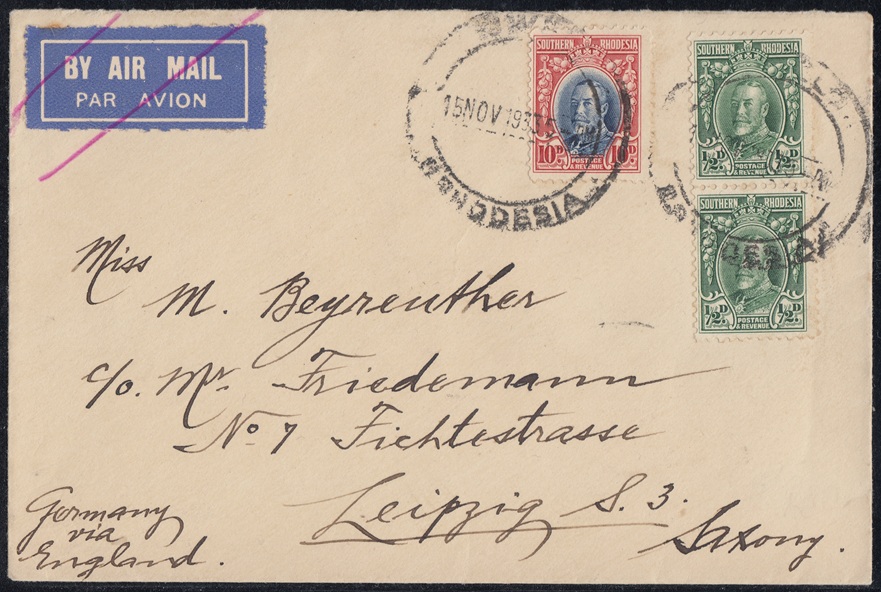 BY AIR MAIL
PAR AVION
SOUTHERN RHODESIA
10D. 10D.
POSTAGE
& REVENUE
15 NOV 193
RHODESIA
SOUTHERN RHODESIA
½D. ½D.
POSTAGE
& REVENUE
SOUTHERN RHODESIA
½D. ½D.
POSTAGE
& REVENUE
Miss
M. Beyreuther
c/o. Mr. Friedemann
No 7 Fichtestrasse
Leipzig S. 3.
Saxony.
Germany
via
England.